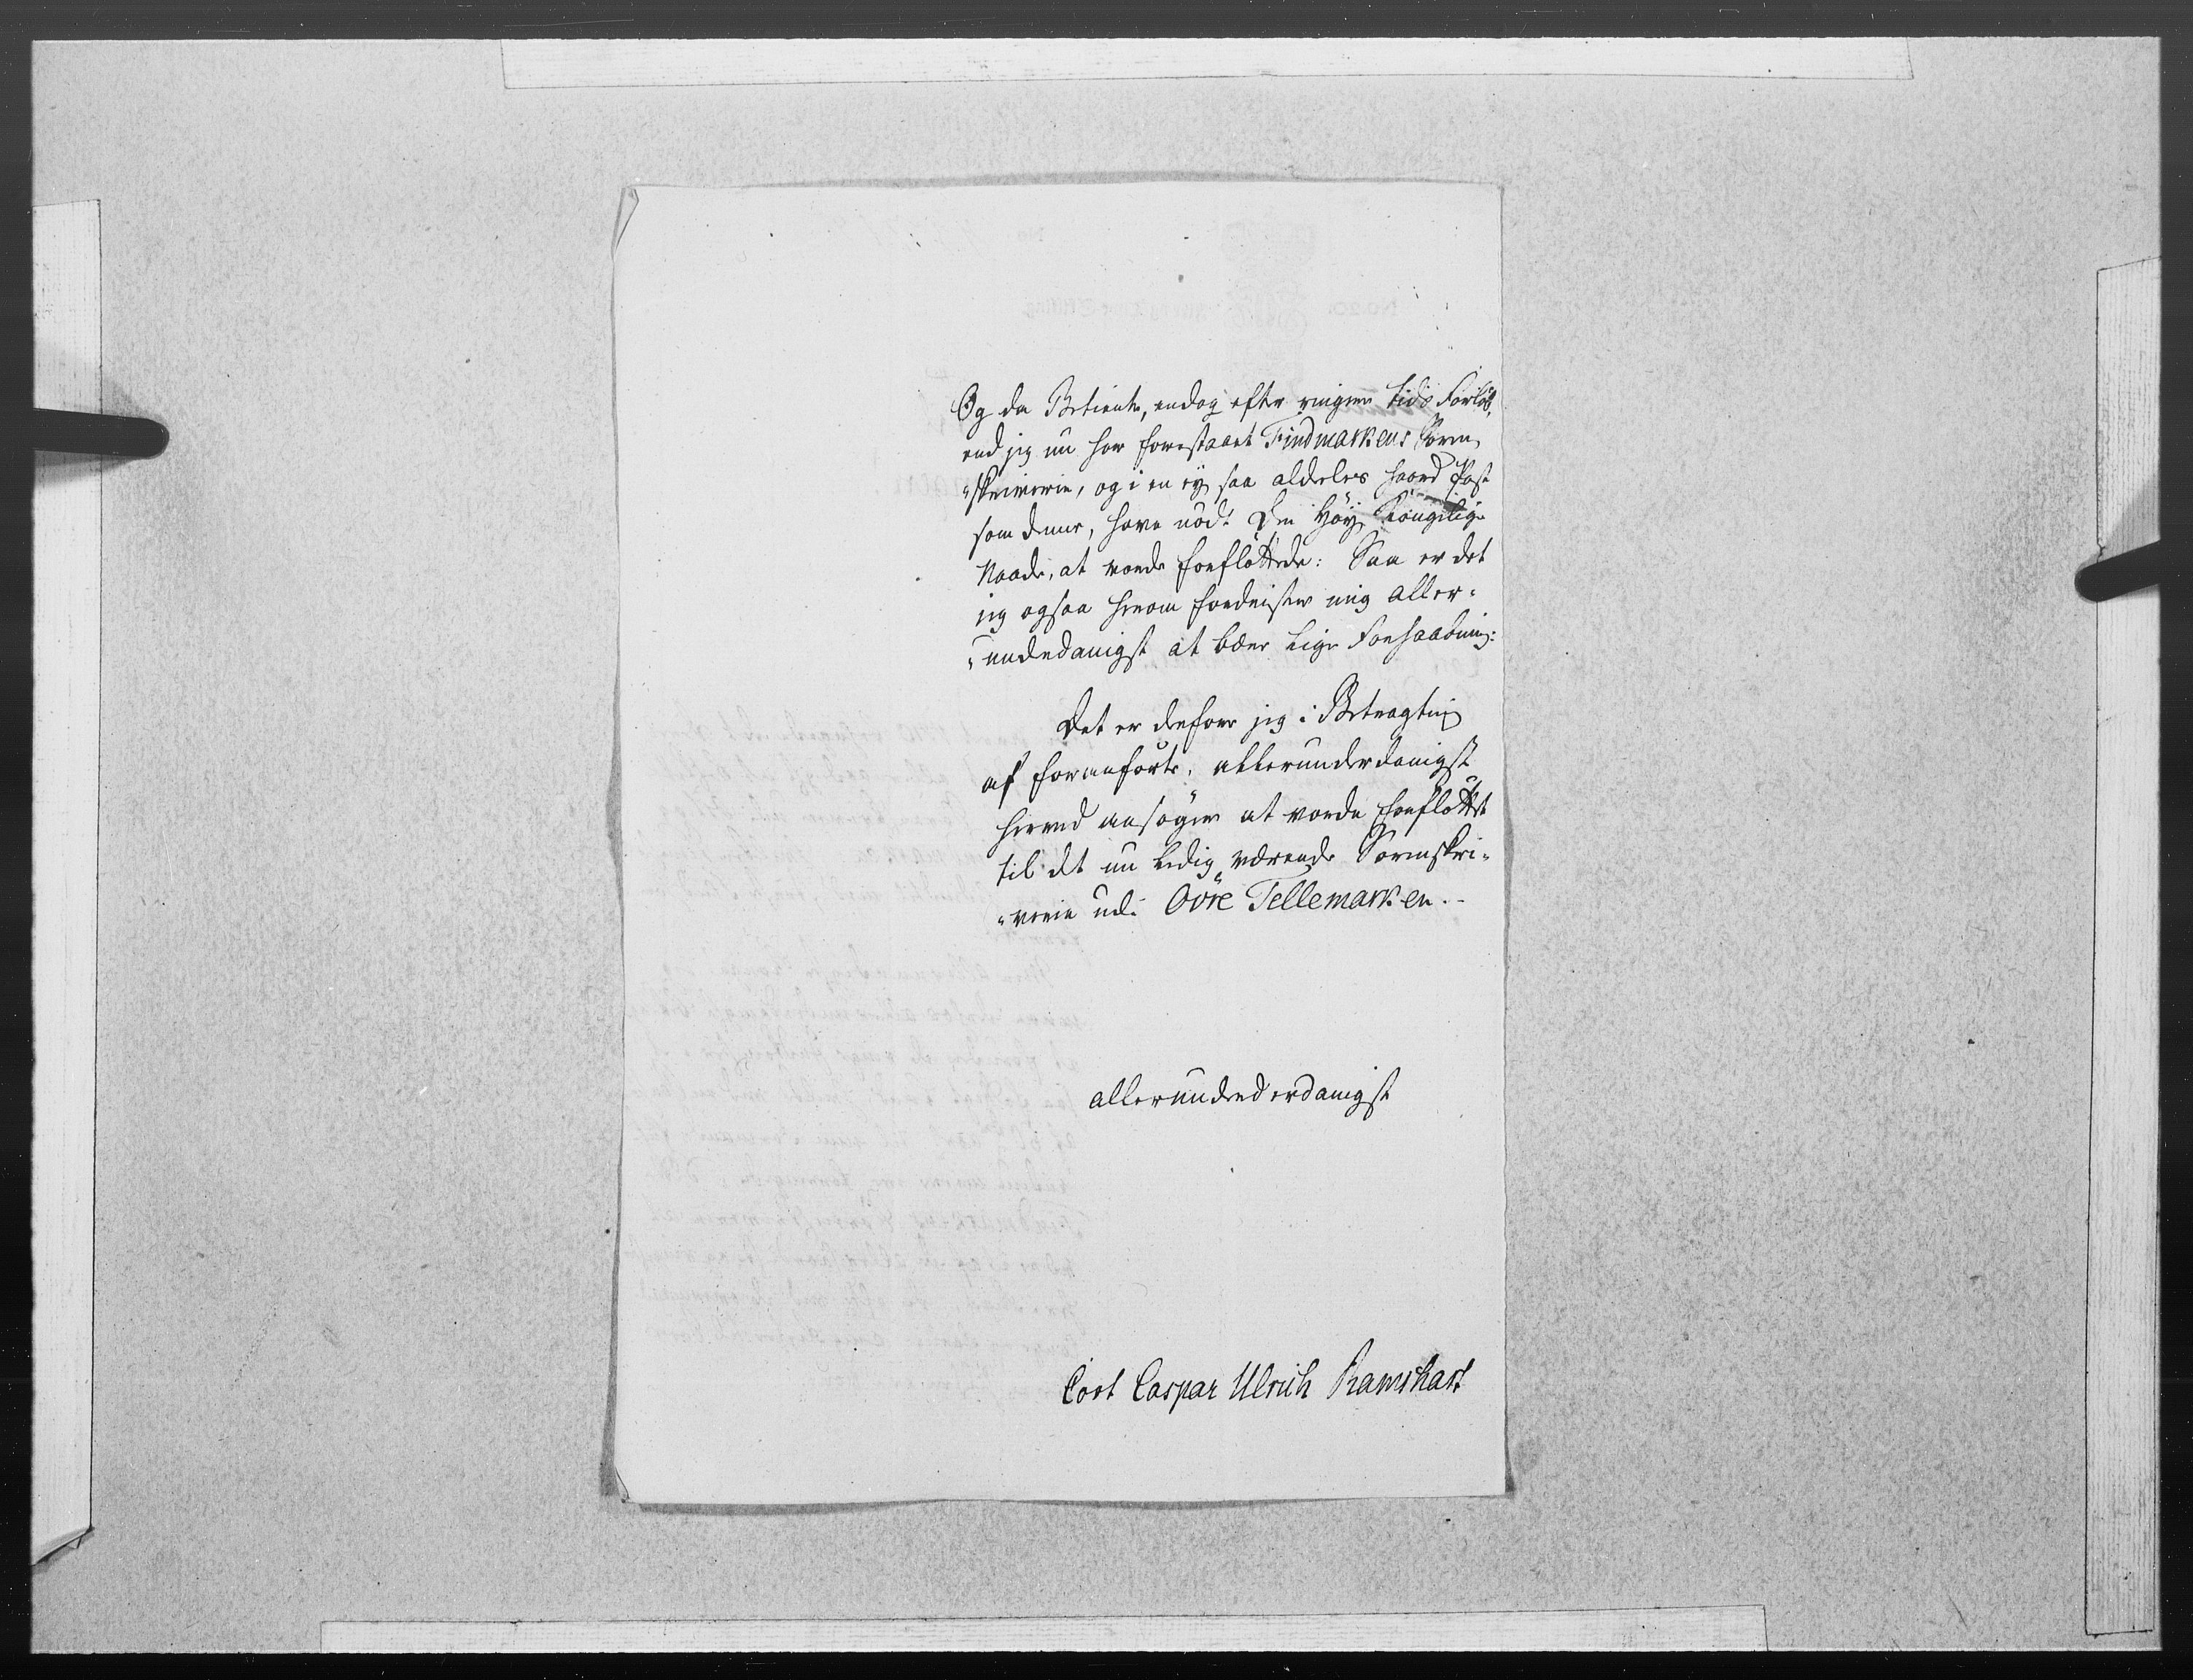 Og da Betiente, endog efter ringere tids Forløb,
end jeg nu har forestaaet Findmarkens Soren„
„skriverie, og i en ej saa aldeles haard Post
som denne, have nödt den Høy Kongelige
Naade, at vorde forfløttede: Saa er det
jeg ogsaa herom fordrister mig aller„
„underdanigst at bære lige Forhaabning:
Det er derfore jeg i Betragtning
af foranførte, allerunderdanigst
herved ansøger at vorde forfløttet
til det nu ledig værende Sorenskri„
„verie udi Ovre Tellemarken.-
allerunderderdanigst
Cort Caspar Ulrich Ramshart